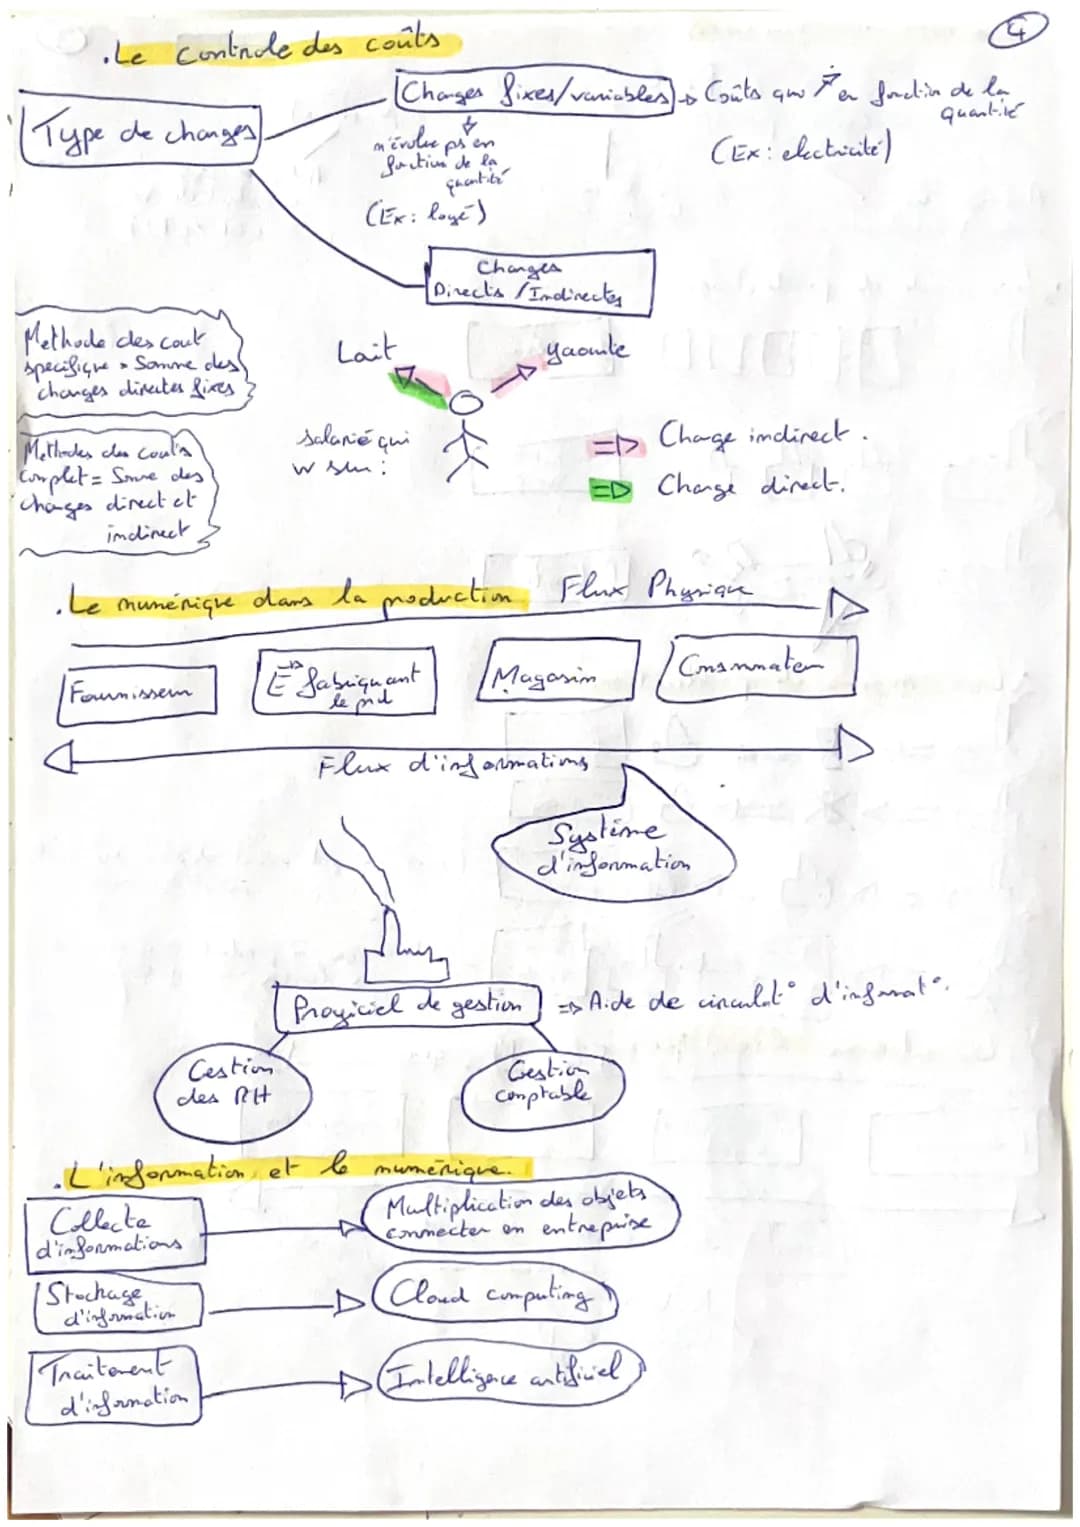 4
.Le controle des coûts
Type de charges
Charges fixes/variables → Coûts qui ↗ en fonction de la
quantité
(Ex: electricité)
n'évolue ps en
fonction de la
quantité
(Ex: loyé)
Charges
Directs / Indirectes
Methode des cout
specifique = Somme des
charges directes fixes
Methodes des couts
complet = Somme des
charges direct et
indirect
Lait
yaourte
salarié qui
w sur :
⇒ Charge indirect.
⇒ Charge direct.
.Le numérique dans la production
Flux Physique
Fournisseur
E se fabriquant
le pdt
Magasin
Consommateur
Flux d'informations
Système
d'information
Progiciel de gestion ⇒ Aide de circulat° d'informat°.
Gestion
des RH
Gestion
comptable
.L'information et le numérique.
Collecte
d'informations
Multiplication des objets
connecter en entreprise
Stockage
d'information
Cloud computing
Traitement
d'information
Intelligence artificiel